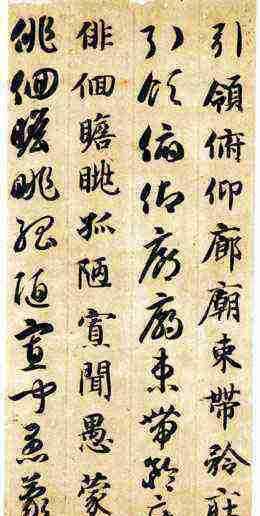 引領俯仰廊廟束帶矜
引領俯仰廊廟束帶矜
俳佪瞻眺孤陋寡聞愚蒙
俳佪瞻眺孤陋寡聞愚蒙